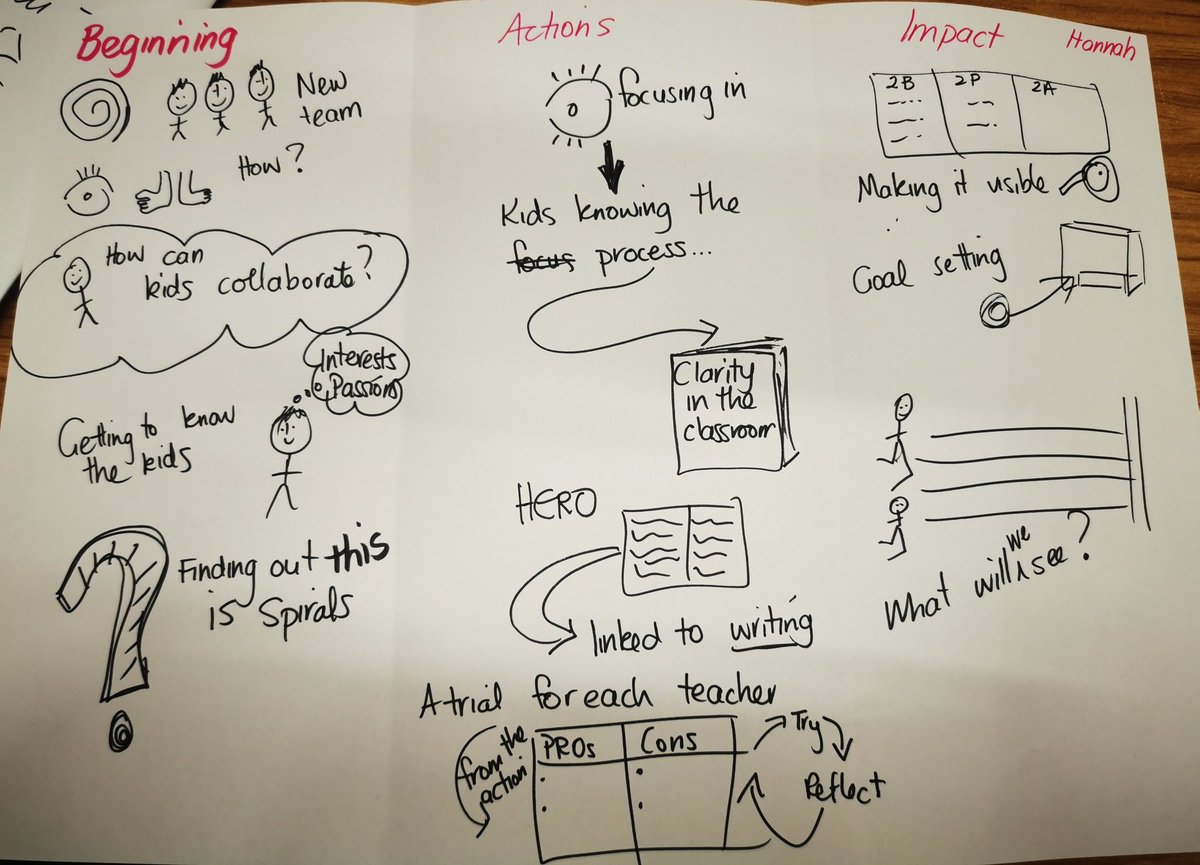 Beginning
New
team
How?
How can
kids collaborate?
Interests
Passions
Getting to know
the kids
Finding out this
is Spirals
Actions
focusing in
Kids knowing the
focus process...
Clarity
in the
classroom
HERO
linked to writing
A trial for each teacher
from the
action
PROs Cons
Try
Reflect
Impact
Hannah
2B 2P 2A
Making it visible
Goal setting
What will we see?